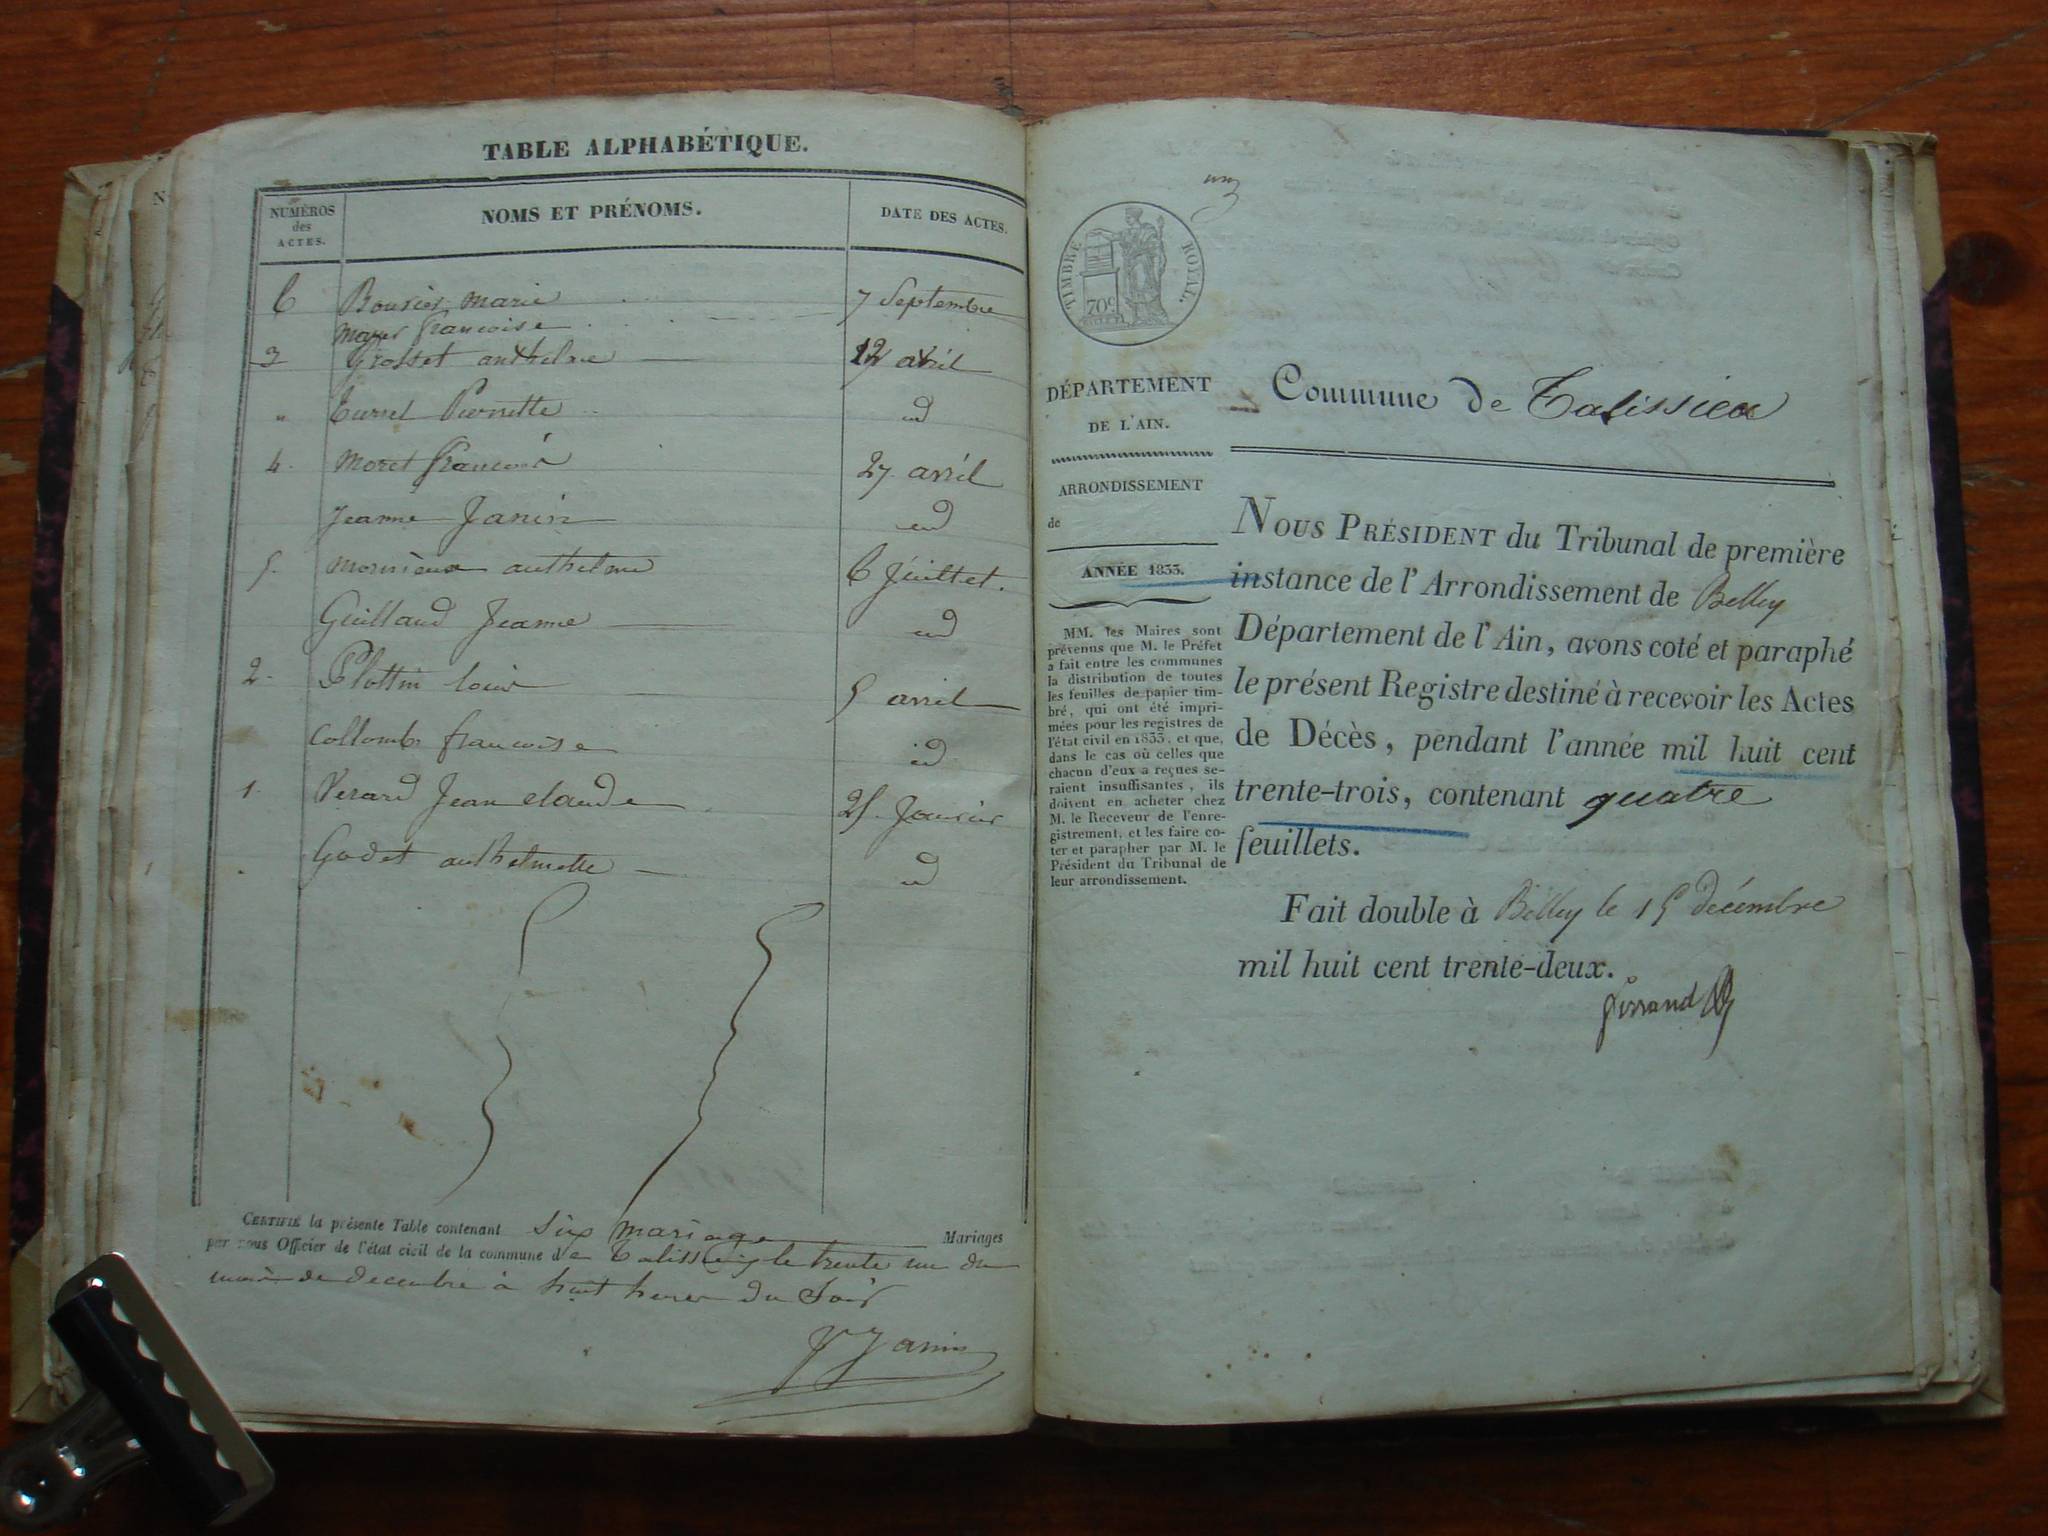 TABLE ALPHABÉTIQUE.
NUMÉROS des ACTES. NOMS ET PRÉNOMS. DATE DES ACTES.
6 marie 7 Septembre
françoise
3 Grosset anthelme 12 avril
" Pierrette id
4. moret françois 27 avril
Jeanne Janin id
5. anthelme 6 juillet.
Guilland Jeanne id
2. Plottin louis 5 avril
Collomb françoise id
1. Verard Jean claude 25 Janvier
Godet anthelmette id
CERTIFIÉ la présente Table contenant Six mariage Mariages
par nous Officier de l'état civil de la commune de le trente un du
mois de decembre à huit heures du Soir
Janin
TIMBRE ROYAL.
70c.
DÉPARTEMENT
DE L'AIN.
ARRONDISSEMENT
de
ANNÉE 1833.
MM. les Maires sont
prévenus que M. le Préfet
a fait entre les communes
la distribution de toutes
les feuilles de papier tim-
bré, qui ont été impri-
mées pour les registres de
l'état civil en 1833, et que,
dans le cas où celles que
chacun d'eux a reçues se-
raient insuffisantes, ils
doivent en acheter chez
M. le Receveur de l'enre-
gistrement, et les faire co-
ter et parapher par M. le
Président du Tribunal de
leur arrondissement.
Commune de Talissieu
NOUS PRÉSIDENT du Tribunal de première
instance de l'Arrondissement de Belley
Département de l'Ain, avons coté et paraphé
le présent Registre destiné à recevoir les Actes
de Décès, pendant l'année mil huit cent
trente-trois, contenant quatre
feuillets.
Fait double à Belley le 15 décembre
mil huit cent trente-deux.